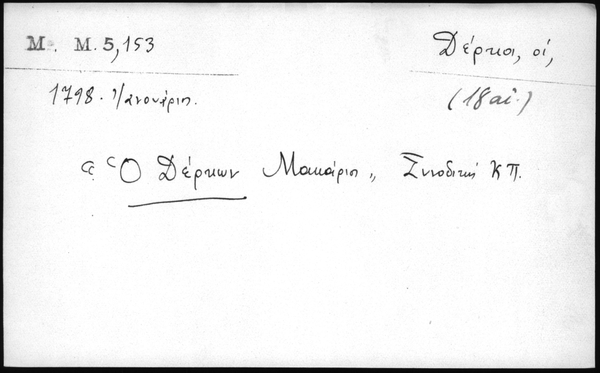 M. M. 5,153
Δέρκοι, οἱ,
1798. Ἰανουάριος.
(18 αἰ.)
« Ὁ Δέρκων Μακάριος „ Συνοδική ΚΠ.